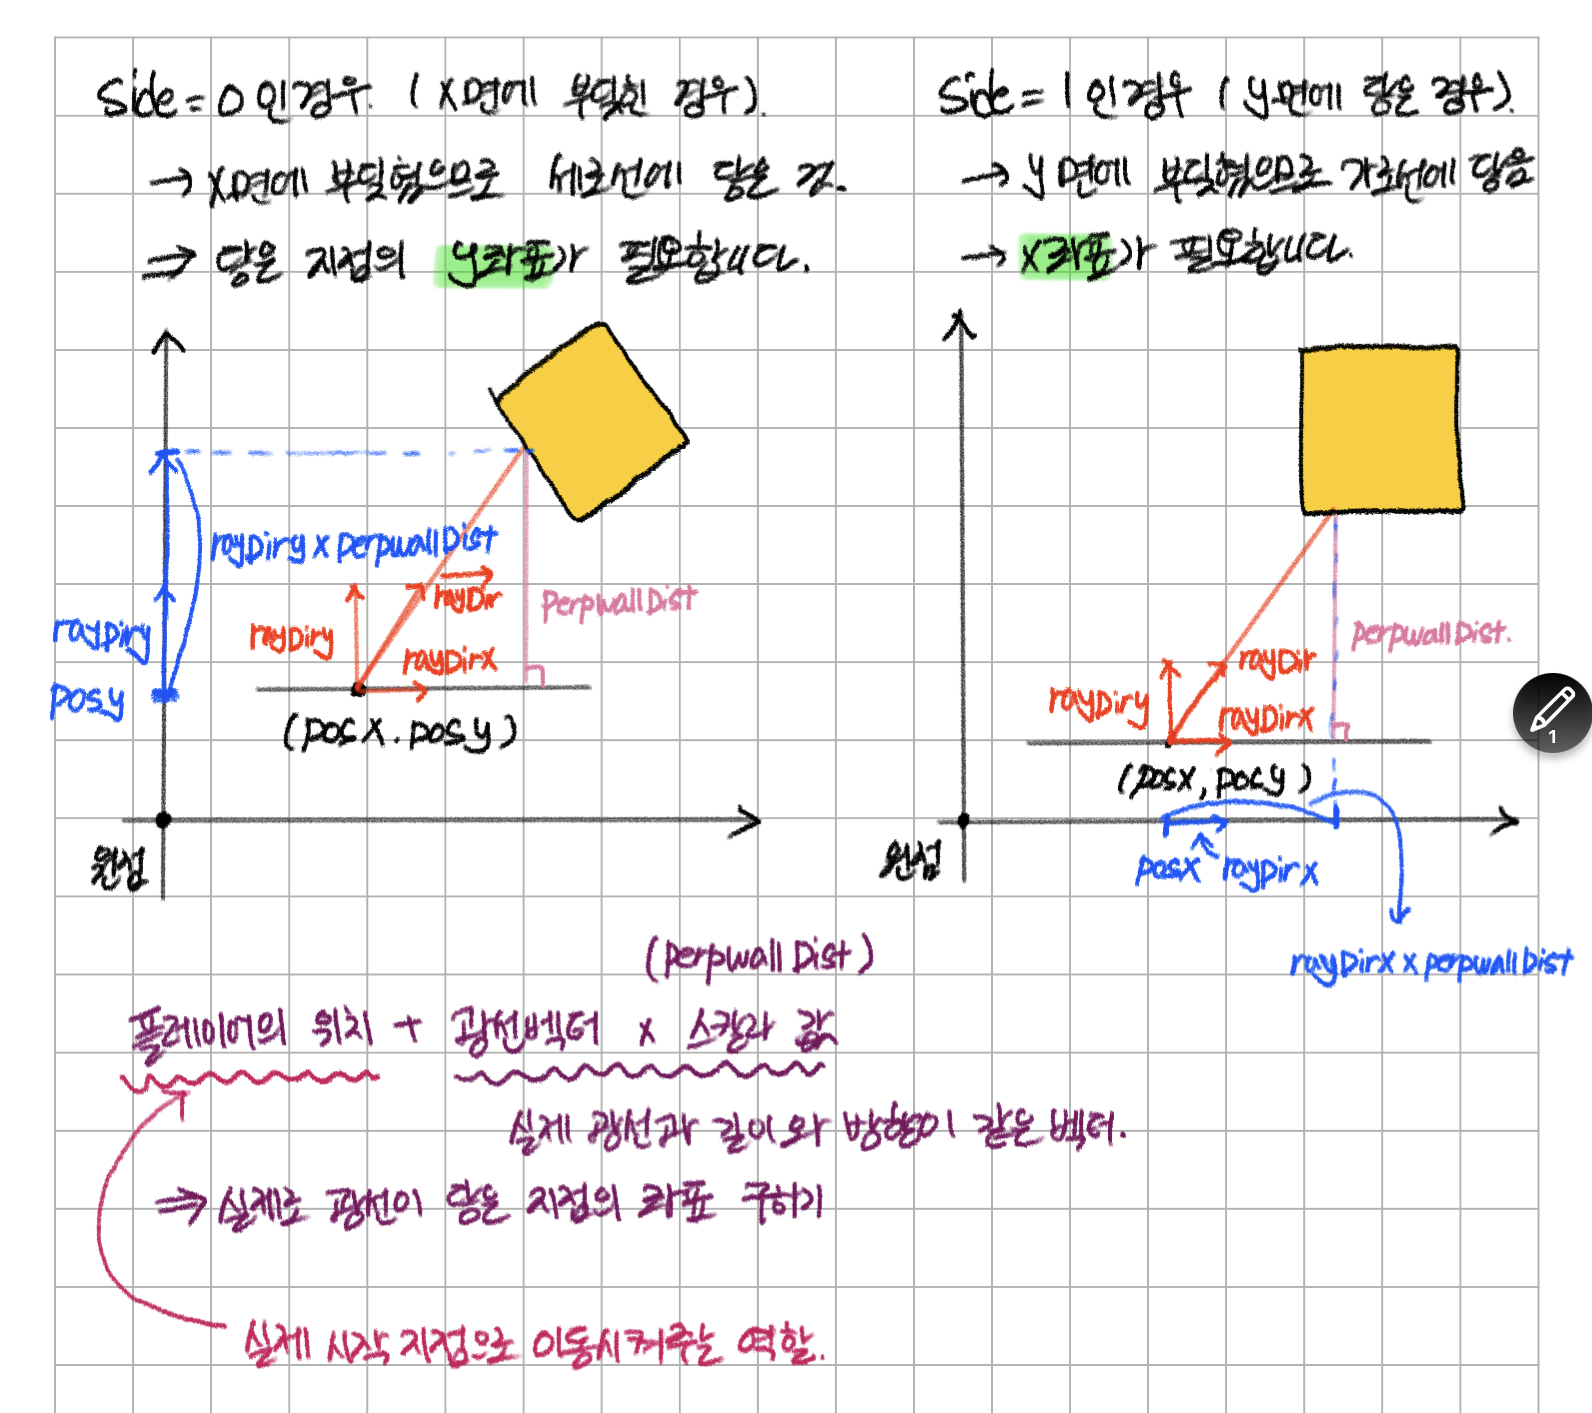 Side = 0 인경우 ( x면에 부딪힌 경우).
→ x면에 부딪혔으므로 세로선에 닿은 것.
⇒ 닿은 지점의 y좌표가 필요합니다.
rayDiry x perpwallDist
rayDir
perpwallDist
rayDiry
rayDiry
rayDirx
posy
(posx. posy)
원점
Side = 1 인경우 ( y면에 닿은 경우).
→ y면에 부딪혔으므로 가로선에 닿음
→ x좌표가 필요합니다.
perpwallDist.
rayDir
rayDiry
rayDirx
(posx, posy)
원점
posx rayDirx
rayDirx x perpwallDist
(perpwallDist)
플레이어의 위치 + 광선벡터 x 스칼라 값
실제 광선과 길이와 방향이 같은 벡터.
⇒ 실제로 광선이 닿은 지점의 좌표 구하기
실제 시작 지점으로 이동시켜주는 역할.
1